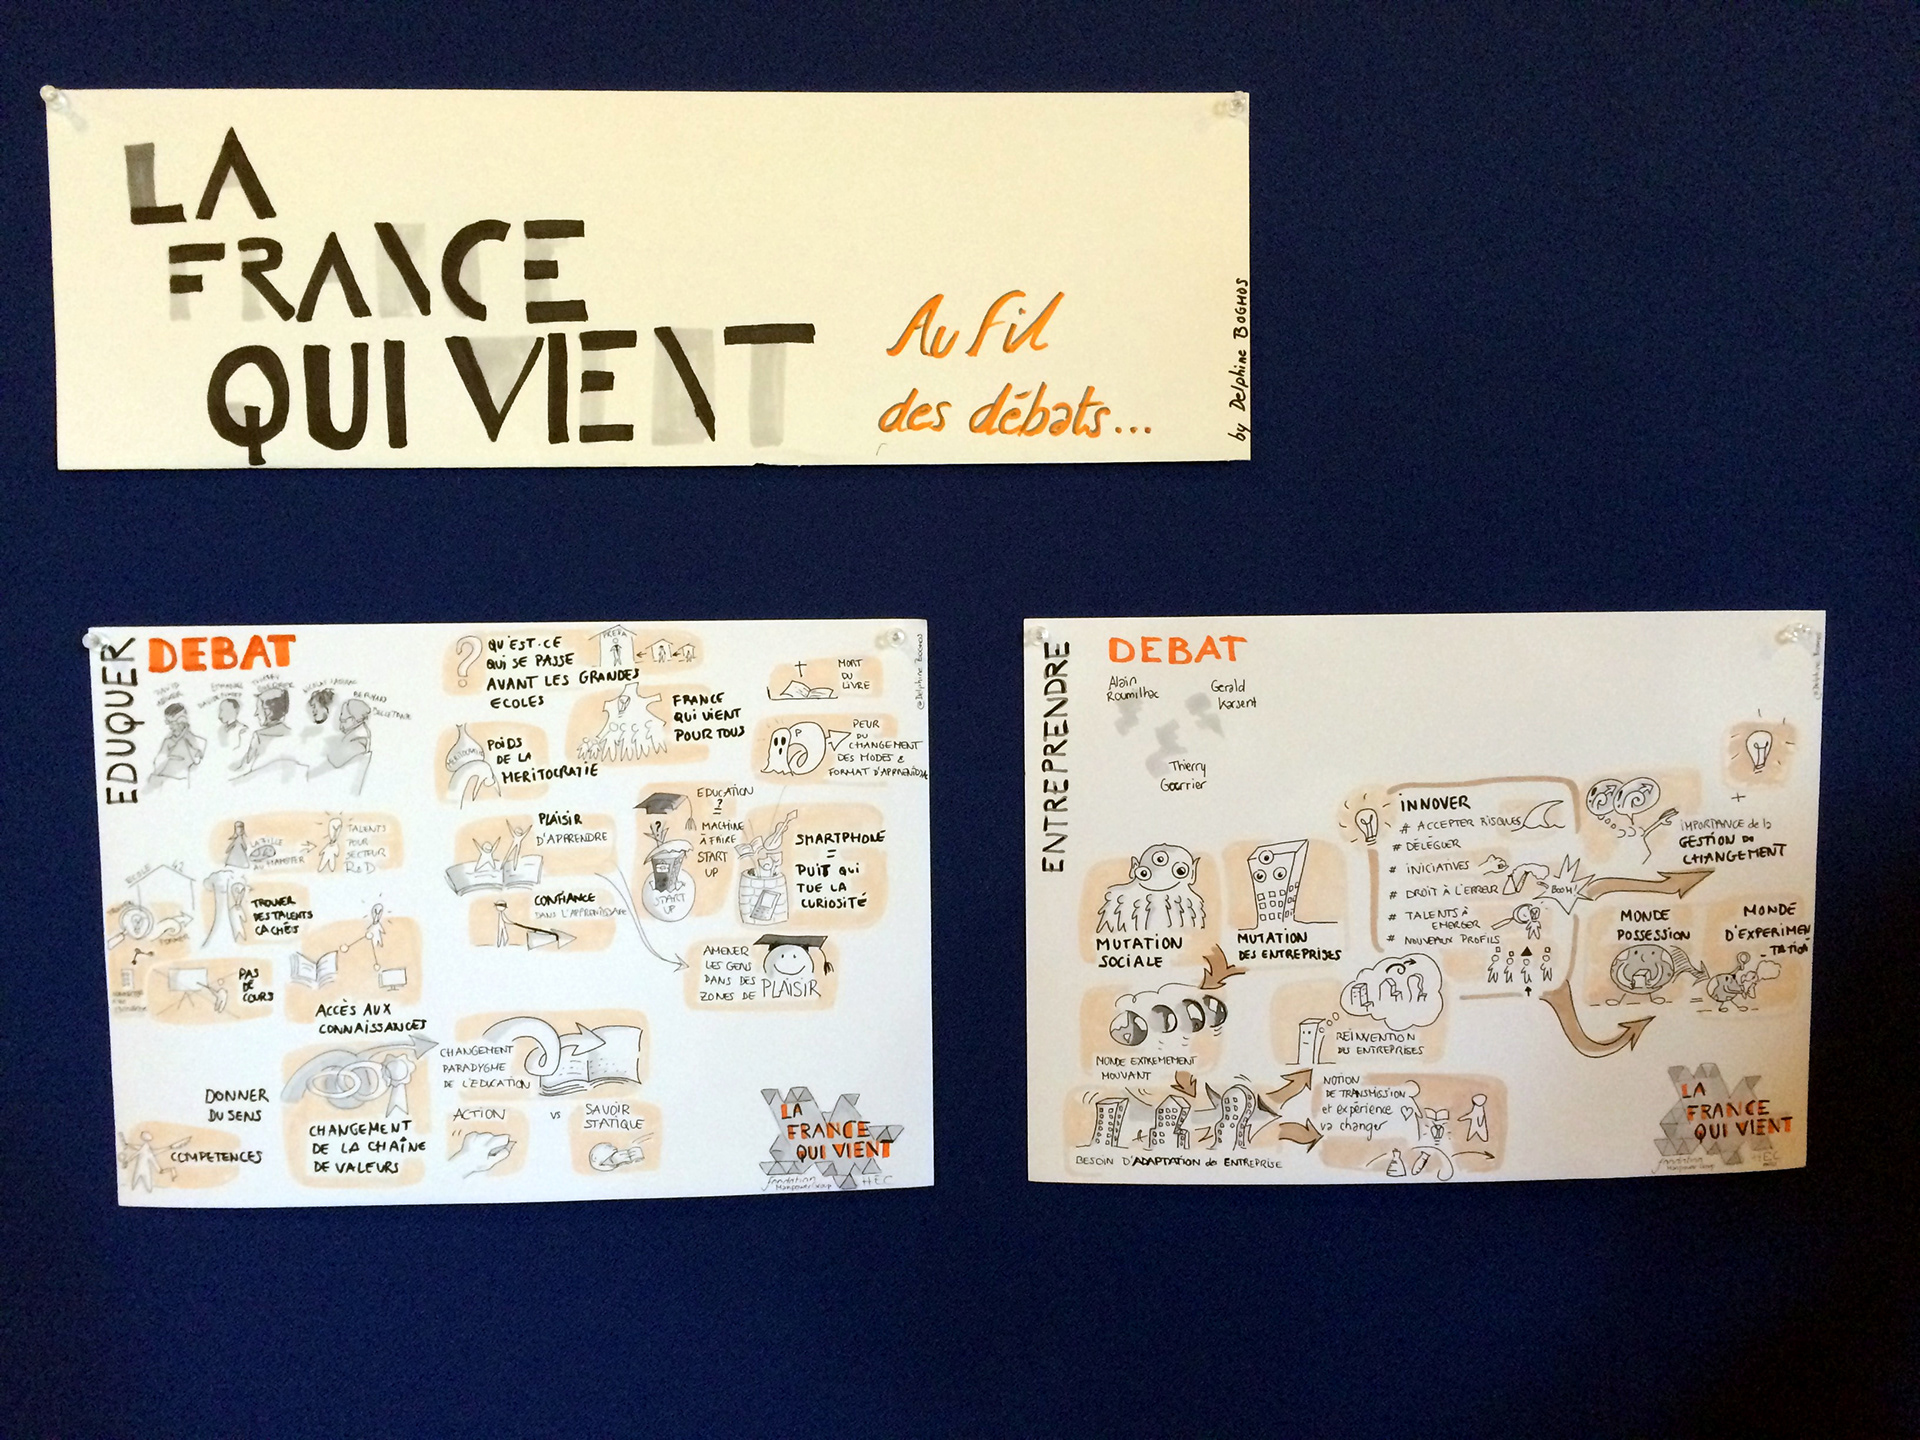 LA
FRANCE
QUI VIENT
Au fil
des débats...
by Delphine BOGHOS
EDUQUER
DEBAT
QU'EST-CE
QUI SE PASSE
AVANT LES GRANDES
ECOLES
PREPA
POIDS
DE LA
MERITOCRATIE
FRANCE
QUI VIENT
POUR TOUS
MORT
DU
LIVRE
PEUR
DU
CHANGEMENT
DES MODES &
FORMAT D'APPRENTISSAGE
@Delphine BOGHOS
TALENTS
POUR
SECTEUR
R&D
ECOLE 42
TROUVER
DES TALENTS
CACHÉS
PAS
DE
COURS
ACCÈS AUX
CONNAISSANCES
PLAISIR
D'APPRENDRE
CONFIANCE
DANS L'APPRENTISSAGE
EDUCATION
?
=
MACHINE
À FAIRE
START
UP
START
UP
SMARTPHONE
=
PUIT QUI
TUE LA
CURIOSITÉ
AMENER
LES GENS
DANS DES
ZONES DE PLAISIR
DONNER
DU SENS
COMPETENCES
CHANGEMENT
DE LA CHAÎNE
DE VALEURS
CHANGEMENT
PARADYGME
DE L'EDUCATION
ACTION
VS
SAVOIR
STATIQUE
LA
FRANCE
QUI VIENT
fondation
ManpowerGroup
HEC
ENTREPRENDRE
DEBAT
Alain
Roumilhac
Gerald
Karsenti
Thierry
MUTATION
SOCIALE
MUTATION
DES ENTREPRISES
MONDE EXTREMEMENT
MOUVANT
BESOIN D'ADAPTATION des ENTREPRISE
INNOVER
# ACCEPTER RISQUES
# DÉLÉGUER
# INITIATIVES
# DROIT À L'ERREUR
# TALENTS À
EMERGER
# NOUVEAUX PROFILS
BOOM!
+
IMPORTANCE de la
GESTION DU
CHANGEMENT
MONDE
POSSESSION
MONDE
D'EXPERIMEN
TATION
REINVENTION
DES ENTREPRISES
NOTION
DE TRANSMISSION
et expérience
va changer
LA
FRANCE
QUI VIENT
fondation
HEC